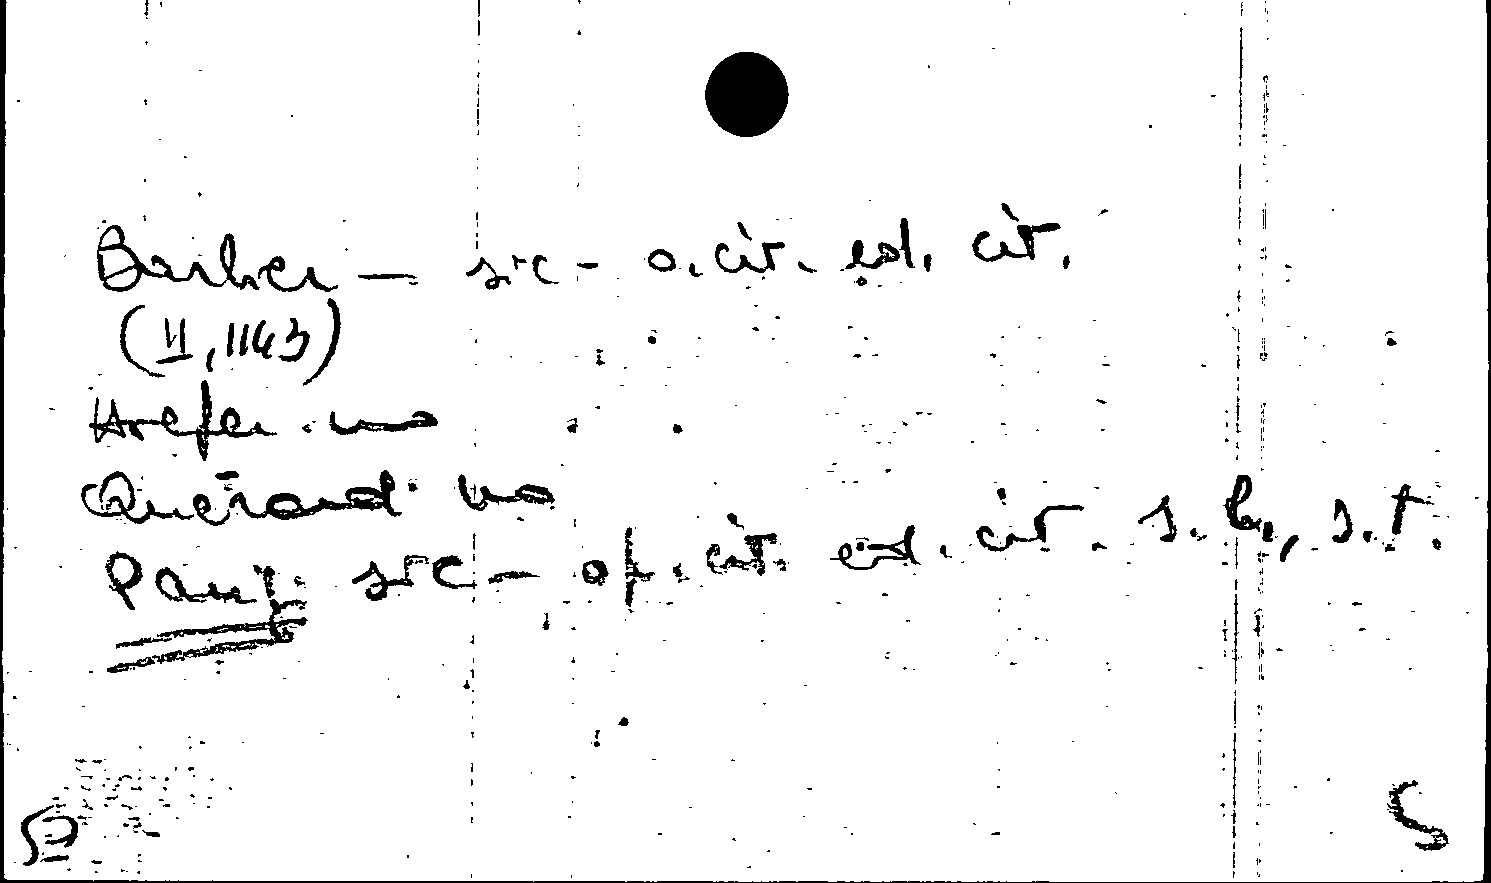 Barbier — sic - o. cit. ed. cit.
(II, 1143)
Hoefer. no
Quérard. no
Pauq. sic - op. cit. ed. cit. s. b., s. t.